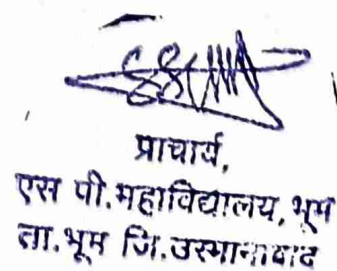 प्राचार्य,
एस पी.महाविद्यालय, भूम
ता.भूम जि.उस्मानाबाद